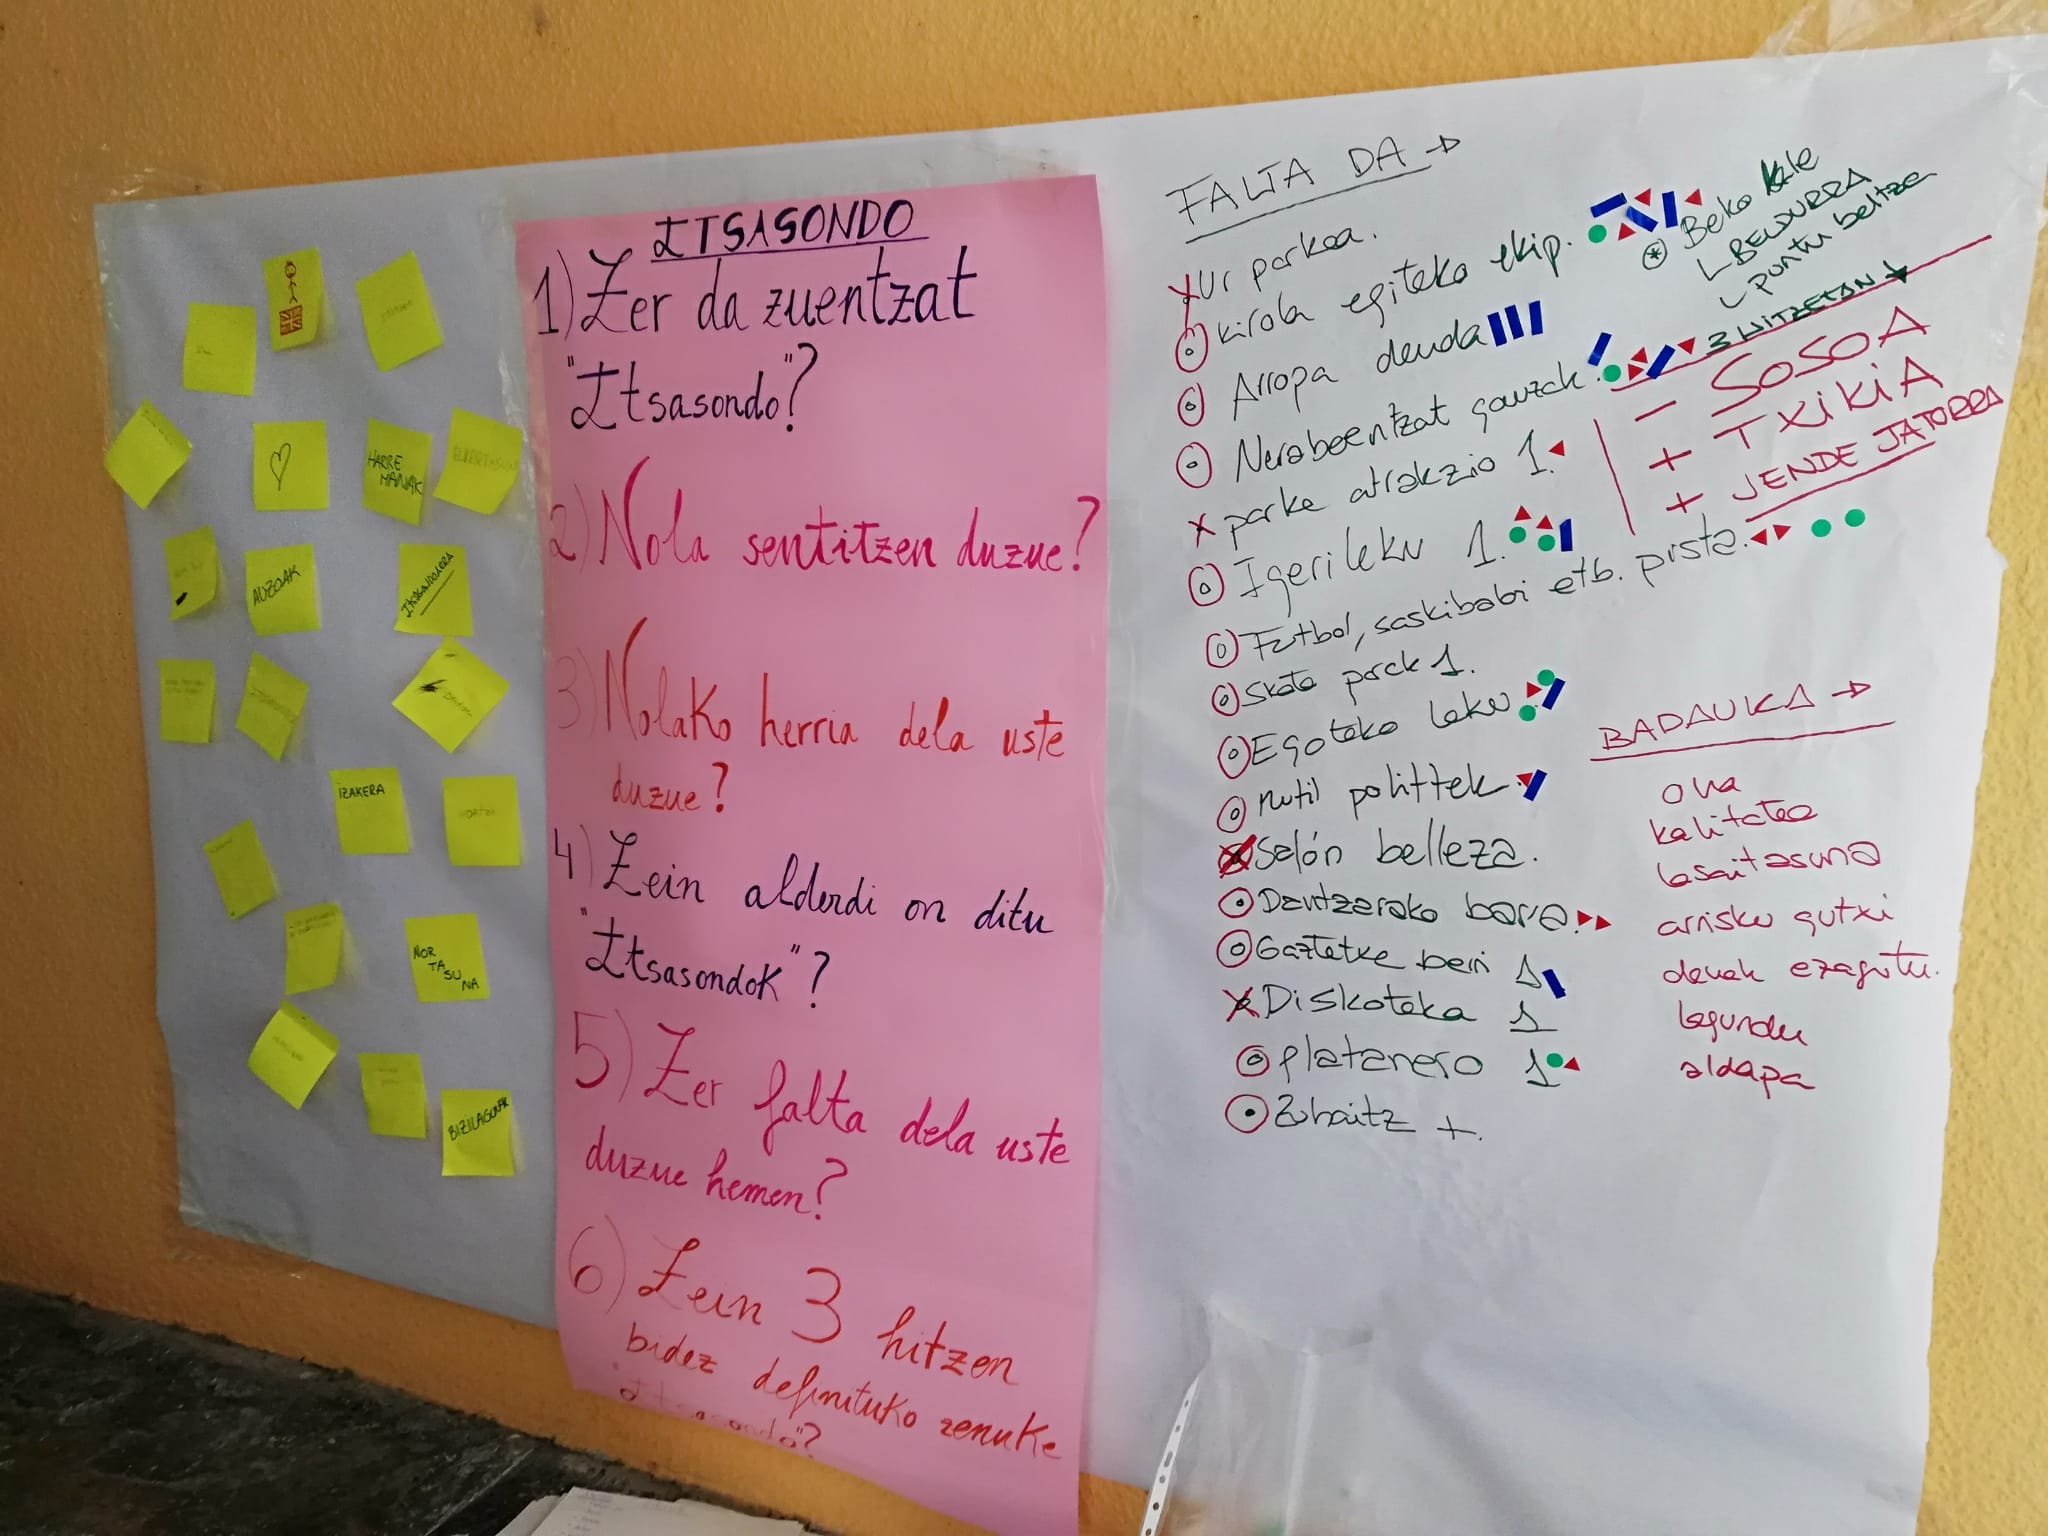 HARRE
MANAK
AUZOAK
ITSASONDOARRA
IZAKERA
NOR
TA
SU
NA
BIZILAGUNAK
ITSASONDO
1) Zer da zuentzat
"Itsasondo"?
2) Nola sentitzen duzue?
3) Nolako herria dela uste
duzue?
4) Zein alderdi on ditu
"Itsasondok"?
5) Zer falta dela uste
duzue hemen?
6) Zein 3 hitzen
bidez definituko zenuke
"Itsasondo"?
FALTA DA →
X Ur parkea.
kirola egiteko ekip.
Arropa denda
Nerabeentzat gauzak.
X parke atrakzio 1.
Igerileku 1.
Futbol, saskibaloi etb. pista.
Skate parck 1.
Egoteko leku
Mutil polittek
X Salón belleza.
Dantzarako barra.
Gaztetxe berri 1
X Diskoteka 1
platanero 1
Zuhaitz +.
* Beko kale
BELDURRA
puntu beltza
3 HITZETAN ↓
- SOSOA
+ TXIKIA
+ JENDE JATORRA
BADAUKA →
ona
kalitatea
lasaitasuna
arrisku gutxi
denak ezagutu.
lagundu
aldapa